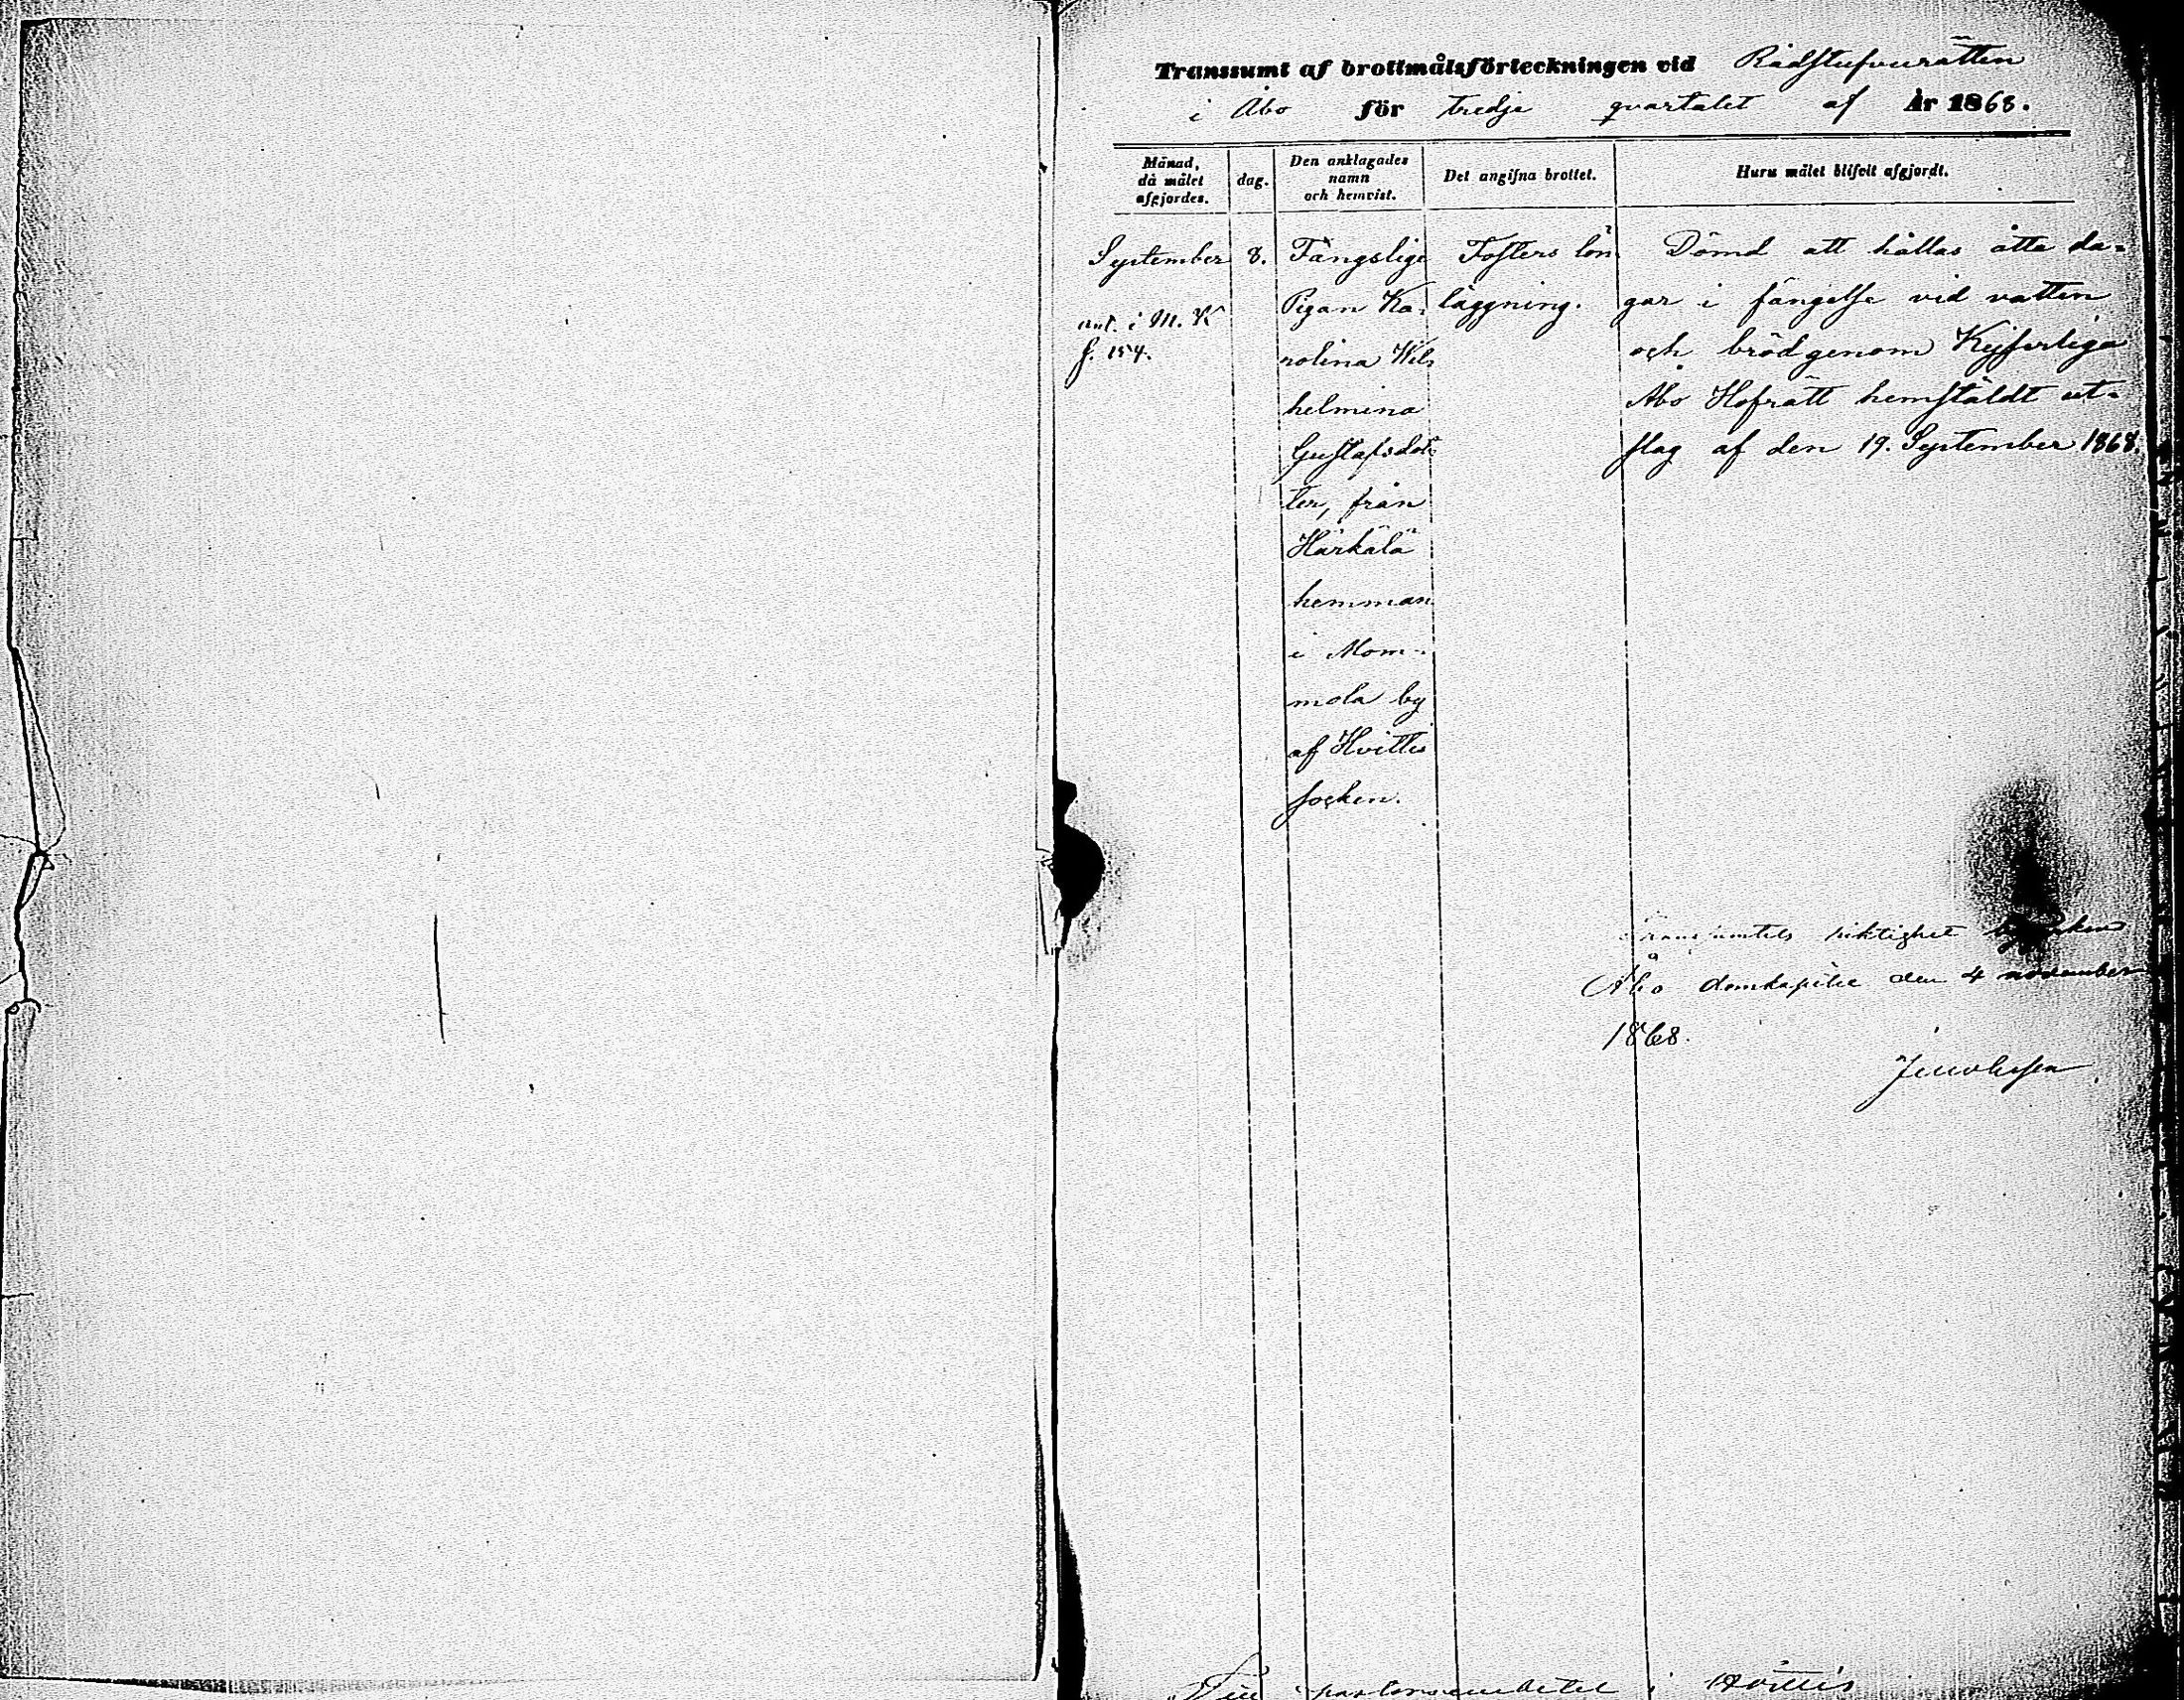 Transsumt af brottmålsförteckningen vid Rådstufvurätten
i Åbo för tredje qvartalet af År 1868.
Månad, då målet afgjordes.
dag.
Den anklagades namn och hemvist.
Det angifna brottet.
Huru målet blifvit afgjordt.
September
8.
ant. i M. K
s. 154.
Fängsliga
Pigan Ka-
rolina Wil-
helmina
Gustafsdot-
ter, från
Härkälä
hemman
i Mom-
mola by
af Hvittis
socken.
Fosters lön
läggning.
Dömd att hållas åtta da-
gar i fängelse vid vatten
och bröd genom Kejserliga
Åbo Hofrätt hemstäldt ut-
slag af den 19. September 1868.
riktighet
Åbo domkapitel den 4 november
1868.
Till pastorsembetet i Hvittis